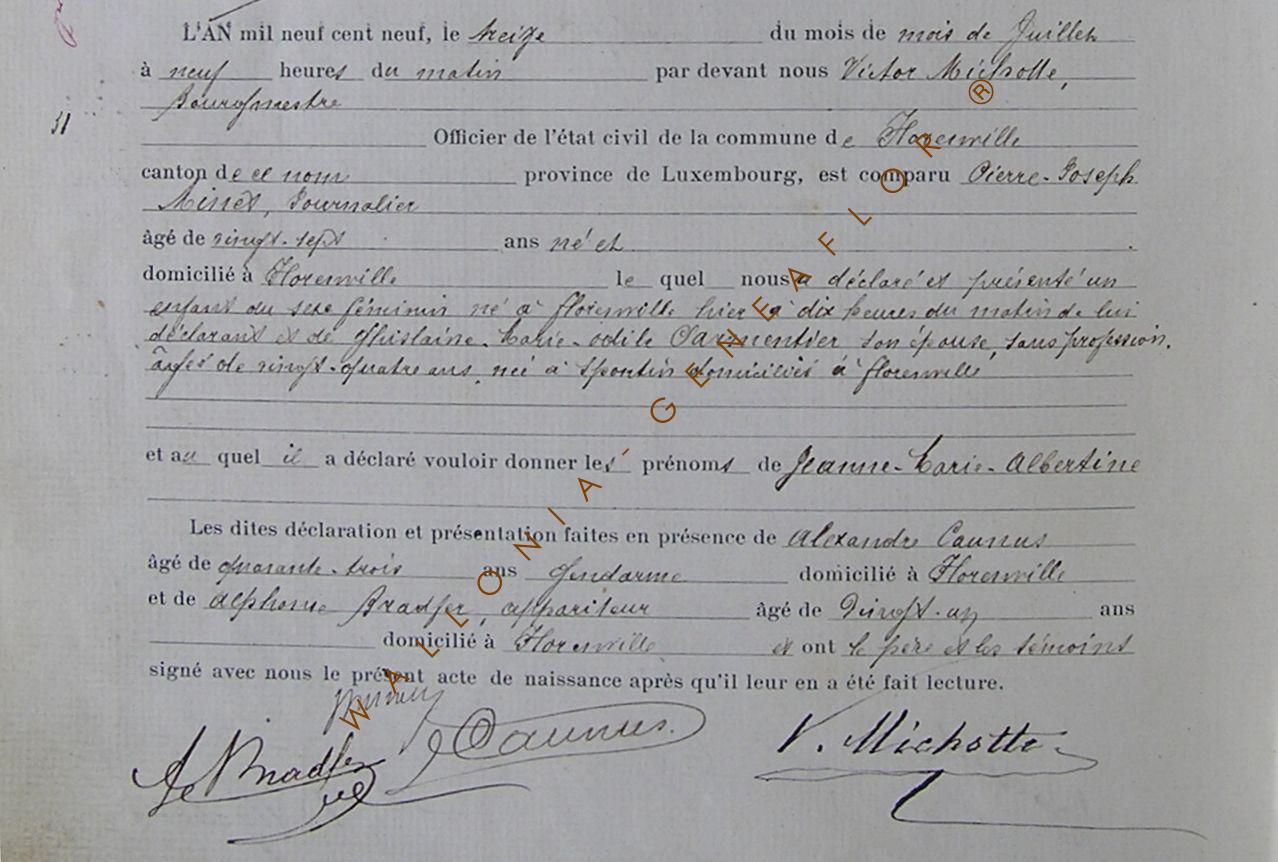 L'AN mil neuf cent neuf, le treize du mois de mois de Juillet
à neuf heures du matin par devant nous Victor Michotte,
Bourgmestre
51
Officier de l'état civil de la commune de Florenville
canton de ce nom province de Luxembourg, est comparu Pierre-Joseph
Minet, Journalier
âgé de vingt-sept ans né et
domicilié à Florenville le quel nous a déclaré et présenté un
enfant du sexe féminin né à florenville hier à dix heures du matin de lui
déclarant et de Ghislaine-Marie-odile Parmentier son épouse, sans profession,
âgée de vingt-quatre ans, née à Spontin domiciliés à florenville
et au quel il a déclaré vouloir donner les prénoms de Jeanne-Marie-Albertine
Les dites déclaration et présentation faites en présence de Alexandre Caunus
âgé de quarante-trois ans Gendarme domicilié à Florenville
et de Alphonse Bradfer, appariteur âgé de vingt-un ans
domicilié à Florenville et ont le père et les témoins
signé avec nous le présent acte de naissance après qu'il leur en a été fait lecture.
Minet
A Bradfer Caunus V. Michotte
WALLONIA-GENEAFLOR ®